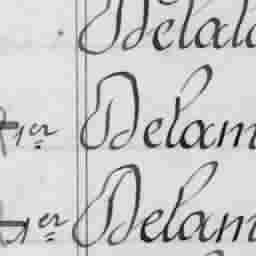 Delala
1er Delam
1er Delam